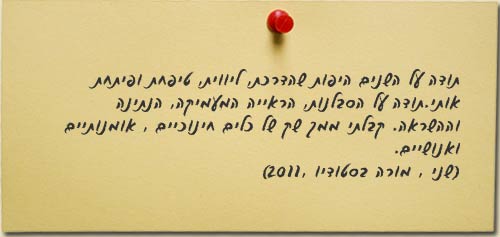 תודה על השנים היפות שהדרכת, ליווית, טיפחת ופיתחת
אותי.תודה על הסבלנות, הראייה המעמיקה, הנתינה
וההשראה. קבלתי ממך שק של כלים חינוכיים , אומנותיים
ואנושיים.
(שני , מורה בסטודיו ,2011)